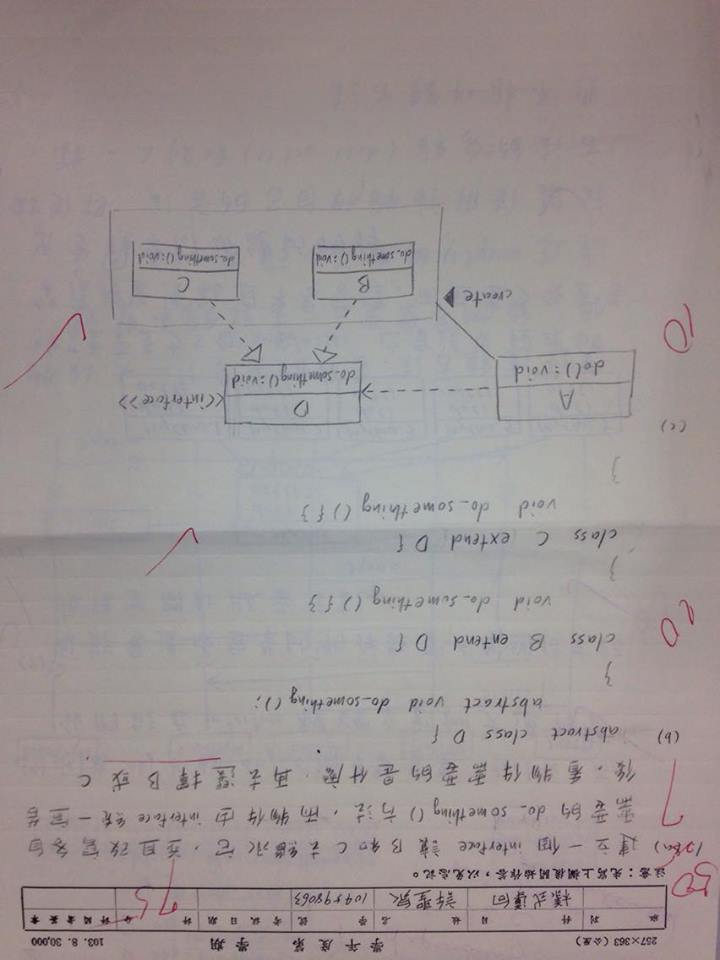 257×363(公厘) 學年度第 學期 103. 8. 30,000
班 別 科 目 姓 名 學 號 考試日期 評 分 評閱者簽章
樣式導向 許聖泉 104598063 75
50
注意：先寫上欄後開始作答，以免忘記。
(a) 建立一個 interface 讓 B 和 C 去繼承它，並且改寫各自
7
需要的 do_something() 方法，而物件由 interface 統一宣告
後，看物件需要的是什麼，再去選擇 B 或 C.
(b) abstract class D {
abstract void do_something();
}
10
class B entend D {
void do_something(){}
}
class C extend D {
void do_something(){}
}
(c)
A
do():void
D
do_something():void
<<interface>>
10
create
B
do_something():void
C
do_something():void